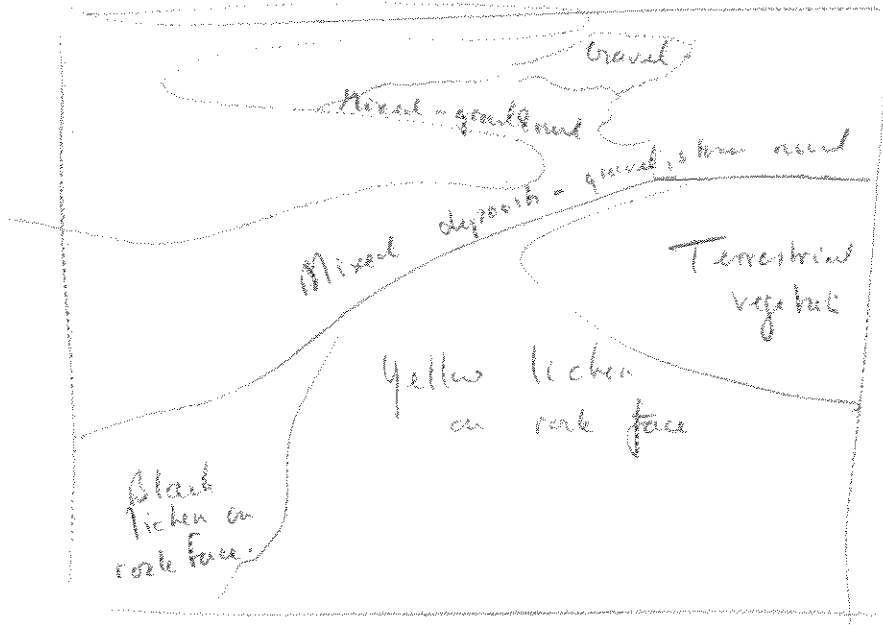 Gravel
Mixed - gravel & sand
Mixed deposits - gravel, stone sand
Terrestrial
vegetat
Yellow lichen
on rock face
Black
lichen on
rock face.